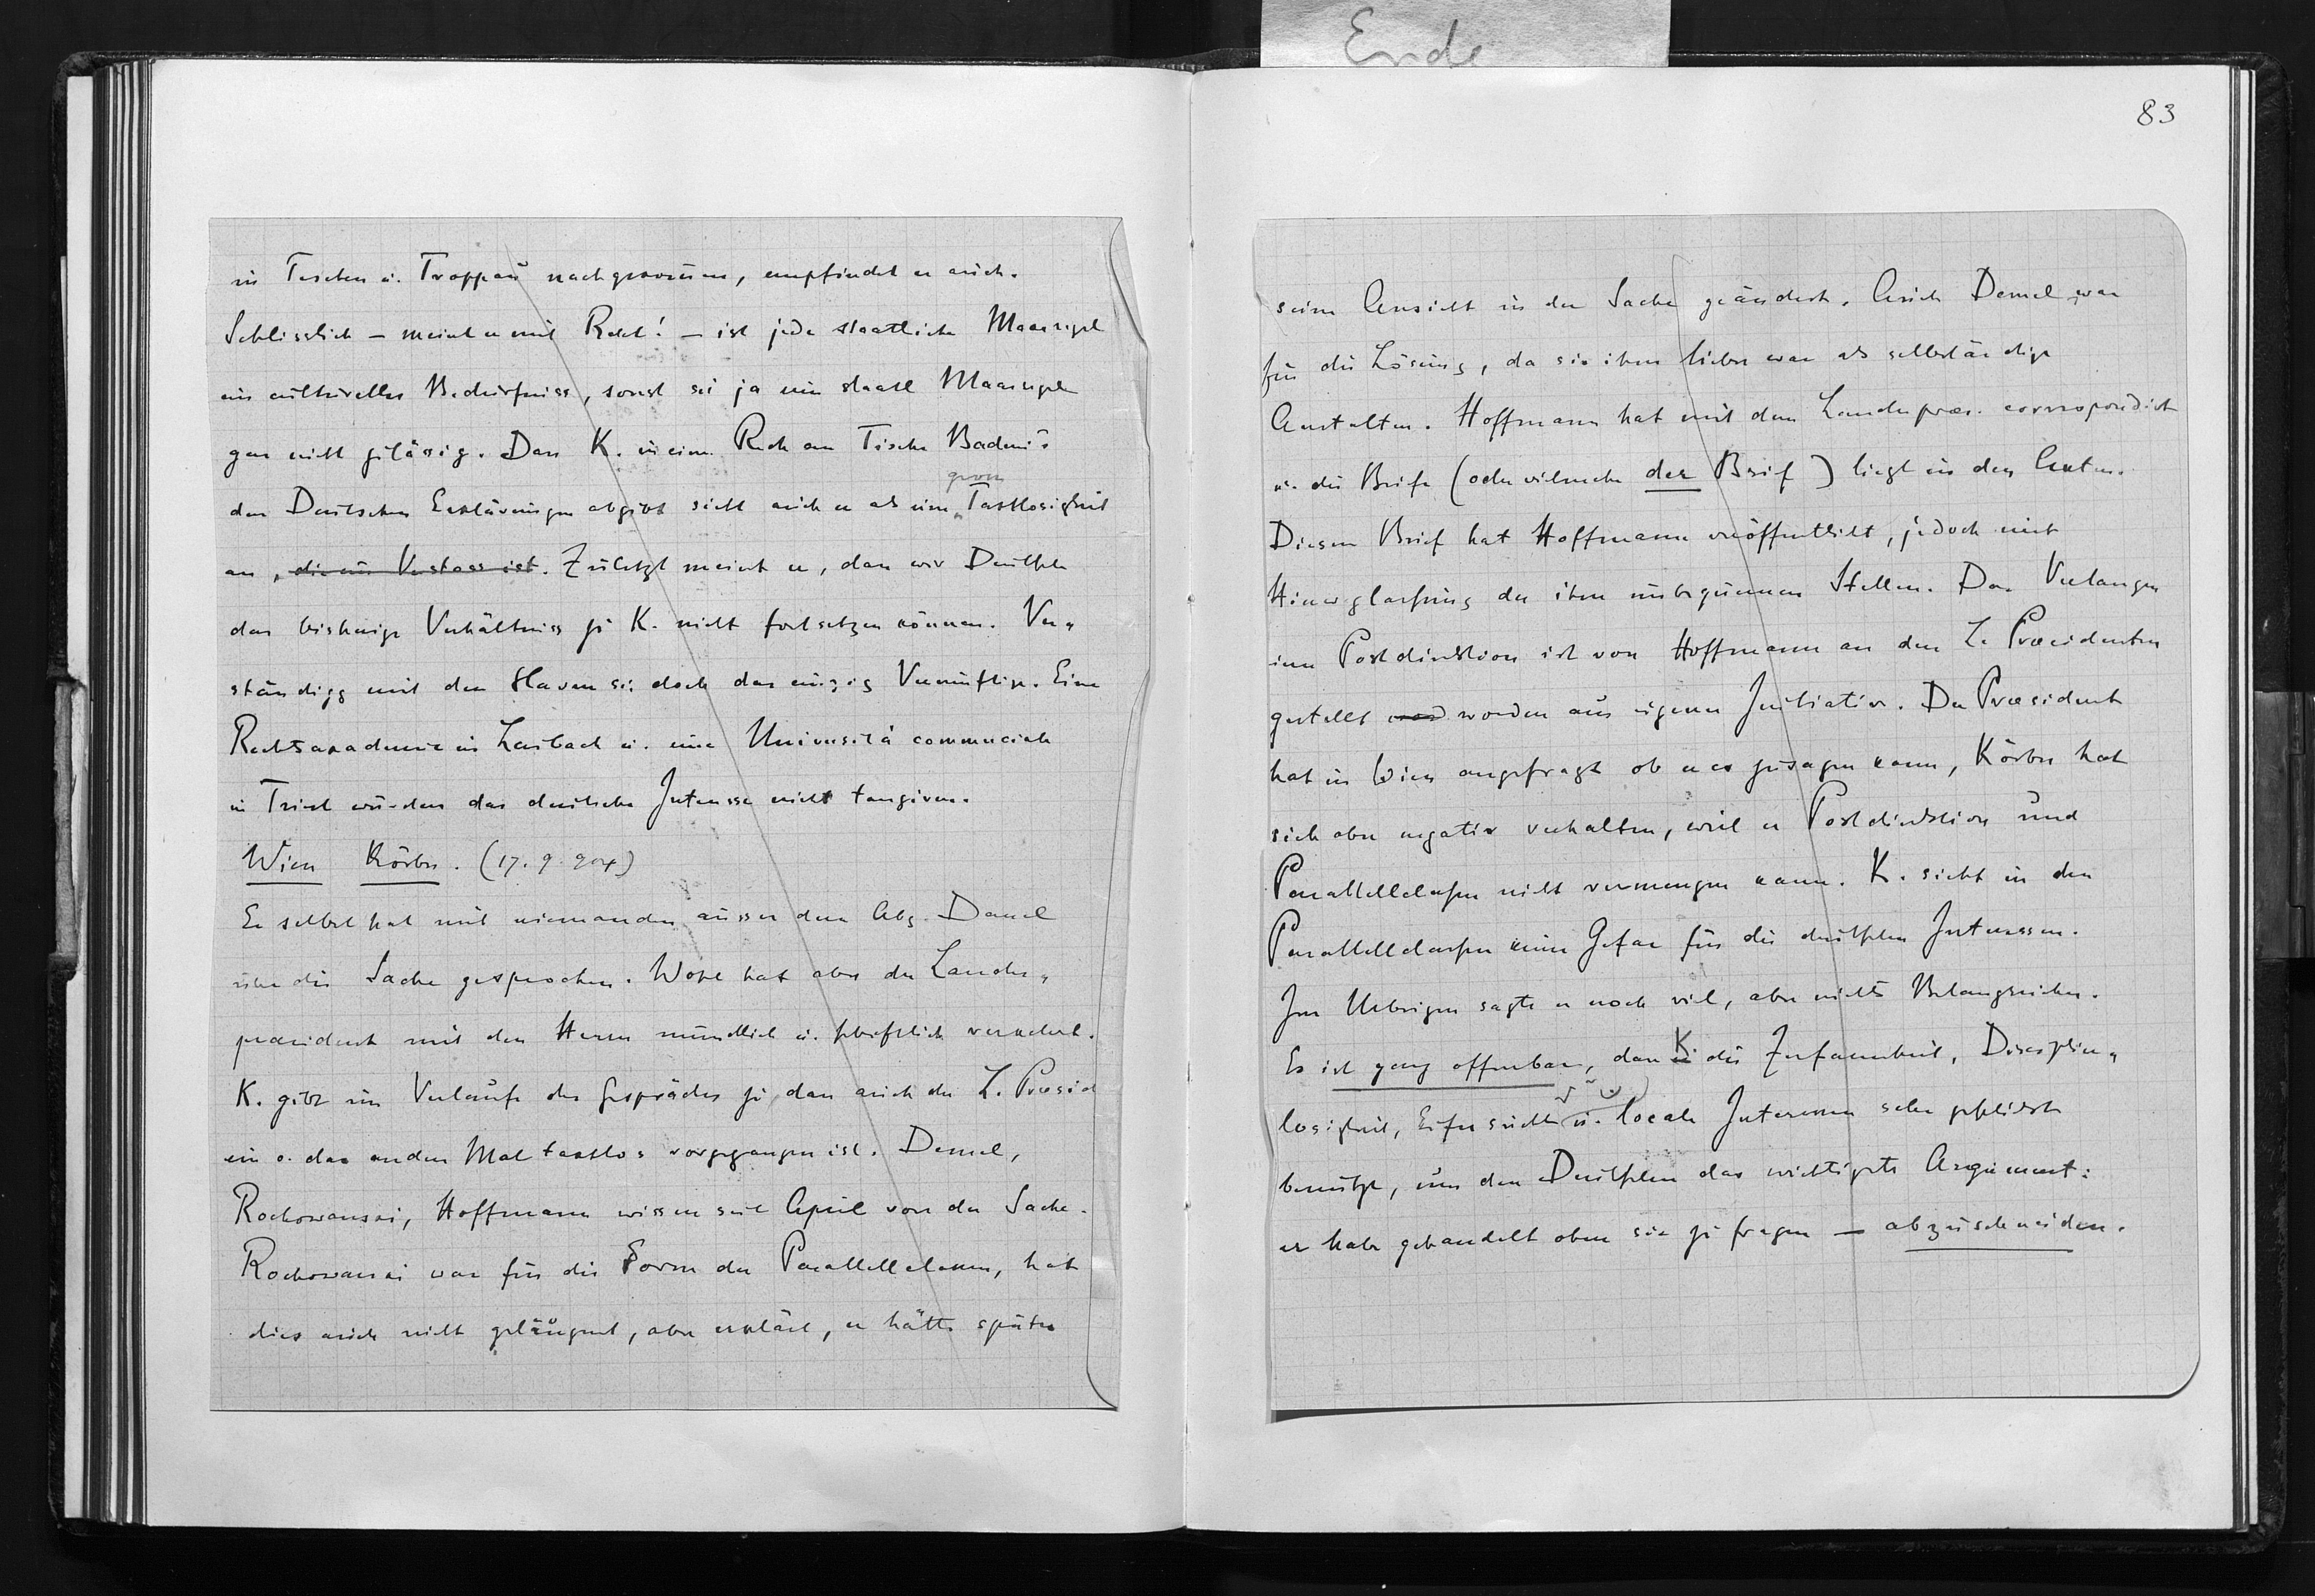 Ende
in Teschen u. Troppau nachgewiesen, empfindet er auch.
Schliesslich – meint er mit Recht! – ist jede staatliche Maasregel
ein culturelles Bedürfniss, sonst sei ja eine staatl Maasregel
gar nicht zulässig. Dass K. in einer Rede am Tische Badeni's
den Deutschen Erklärungen abgibt sieht auch er als eine Tactlosigkeit
gross
an, die ein Verstoss ist. Zuletzt meint er, dass wir Deutsche
das bisherige Verhältniss zu K. nicht fortsetzen können. Ver„
ständigg mit den Slaven sei doch das einzig Vernünftige. Eine
Rechtsacademie in Laibach u. eine Università commerciale
in Triest würden das deutsche Interesse nicht tangiren.
Wien Körber. (17. 9. 904)
Er selbst hat mit niemanden ausser dem Abg. Demel
über die Sache gesprochen. Wohl hat aber der Landes„
praesident mit den Herren mündlich u. schriftlich verkehrt.
K. gibt im Verlaufe des Gespräches zu, dass auch der L. Praesid
ein o. das andere Mal tactlos vorgegangen ist. Demel,
Rochowanski, Hoffmann wissen seit April von der Sache.
Rochowanski war für die Form der Parallellclassen, hat
dies auch nicht geläugnet, aber erklärt, er hätte später
83
seine Ansicht in der Sache geändert. Auch Demel war
für die Lösung, da sie ihm lieber war als selbständige
Anstalten. Hoffmann hat mit dem Landespraes. correspondirt
u. die Briefe (oder vielmehr der Brief) liegt in den Akten.
Diesen Brief hat Hoffmann veröffentlicht, jedoch mit
Hinweglassung der ihm unbequemen Stellen. Das Verlangen
einer Postdirektion ist von Hoffmann an den L. Praesidenten
gestellt worden aus eigener Initiative. Der Praesident
hat in Wien angefragt ob er es zusagen kann, Körber hat
sich aber negativ verhalten, weil er Postdirektion und
Parallellclassen nicht vermengen kann. K. sieht in den
Parallellclassen keine Gefar für die deutschen Interessen.
Im Uebrigen sagte er noch viel, aber nichts Belangreiches.
Es ist ganz offenbar, dass K. die Zerfarenheit, Disciplin„
losigkeit, Eifersucht u. locale Interessen sehr geschickt
benützte, um den Deutschen das wichtigste Argument:
er habe gehandelt ohne sie zu fragen – abzuschneiden.